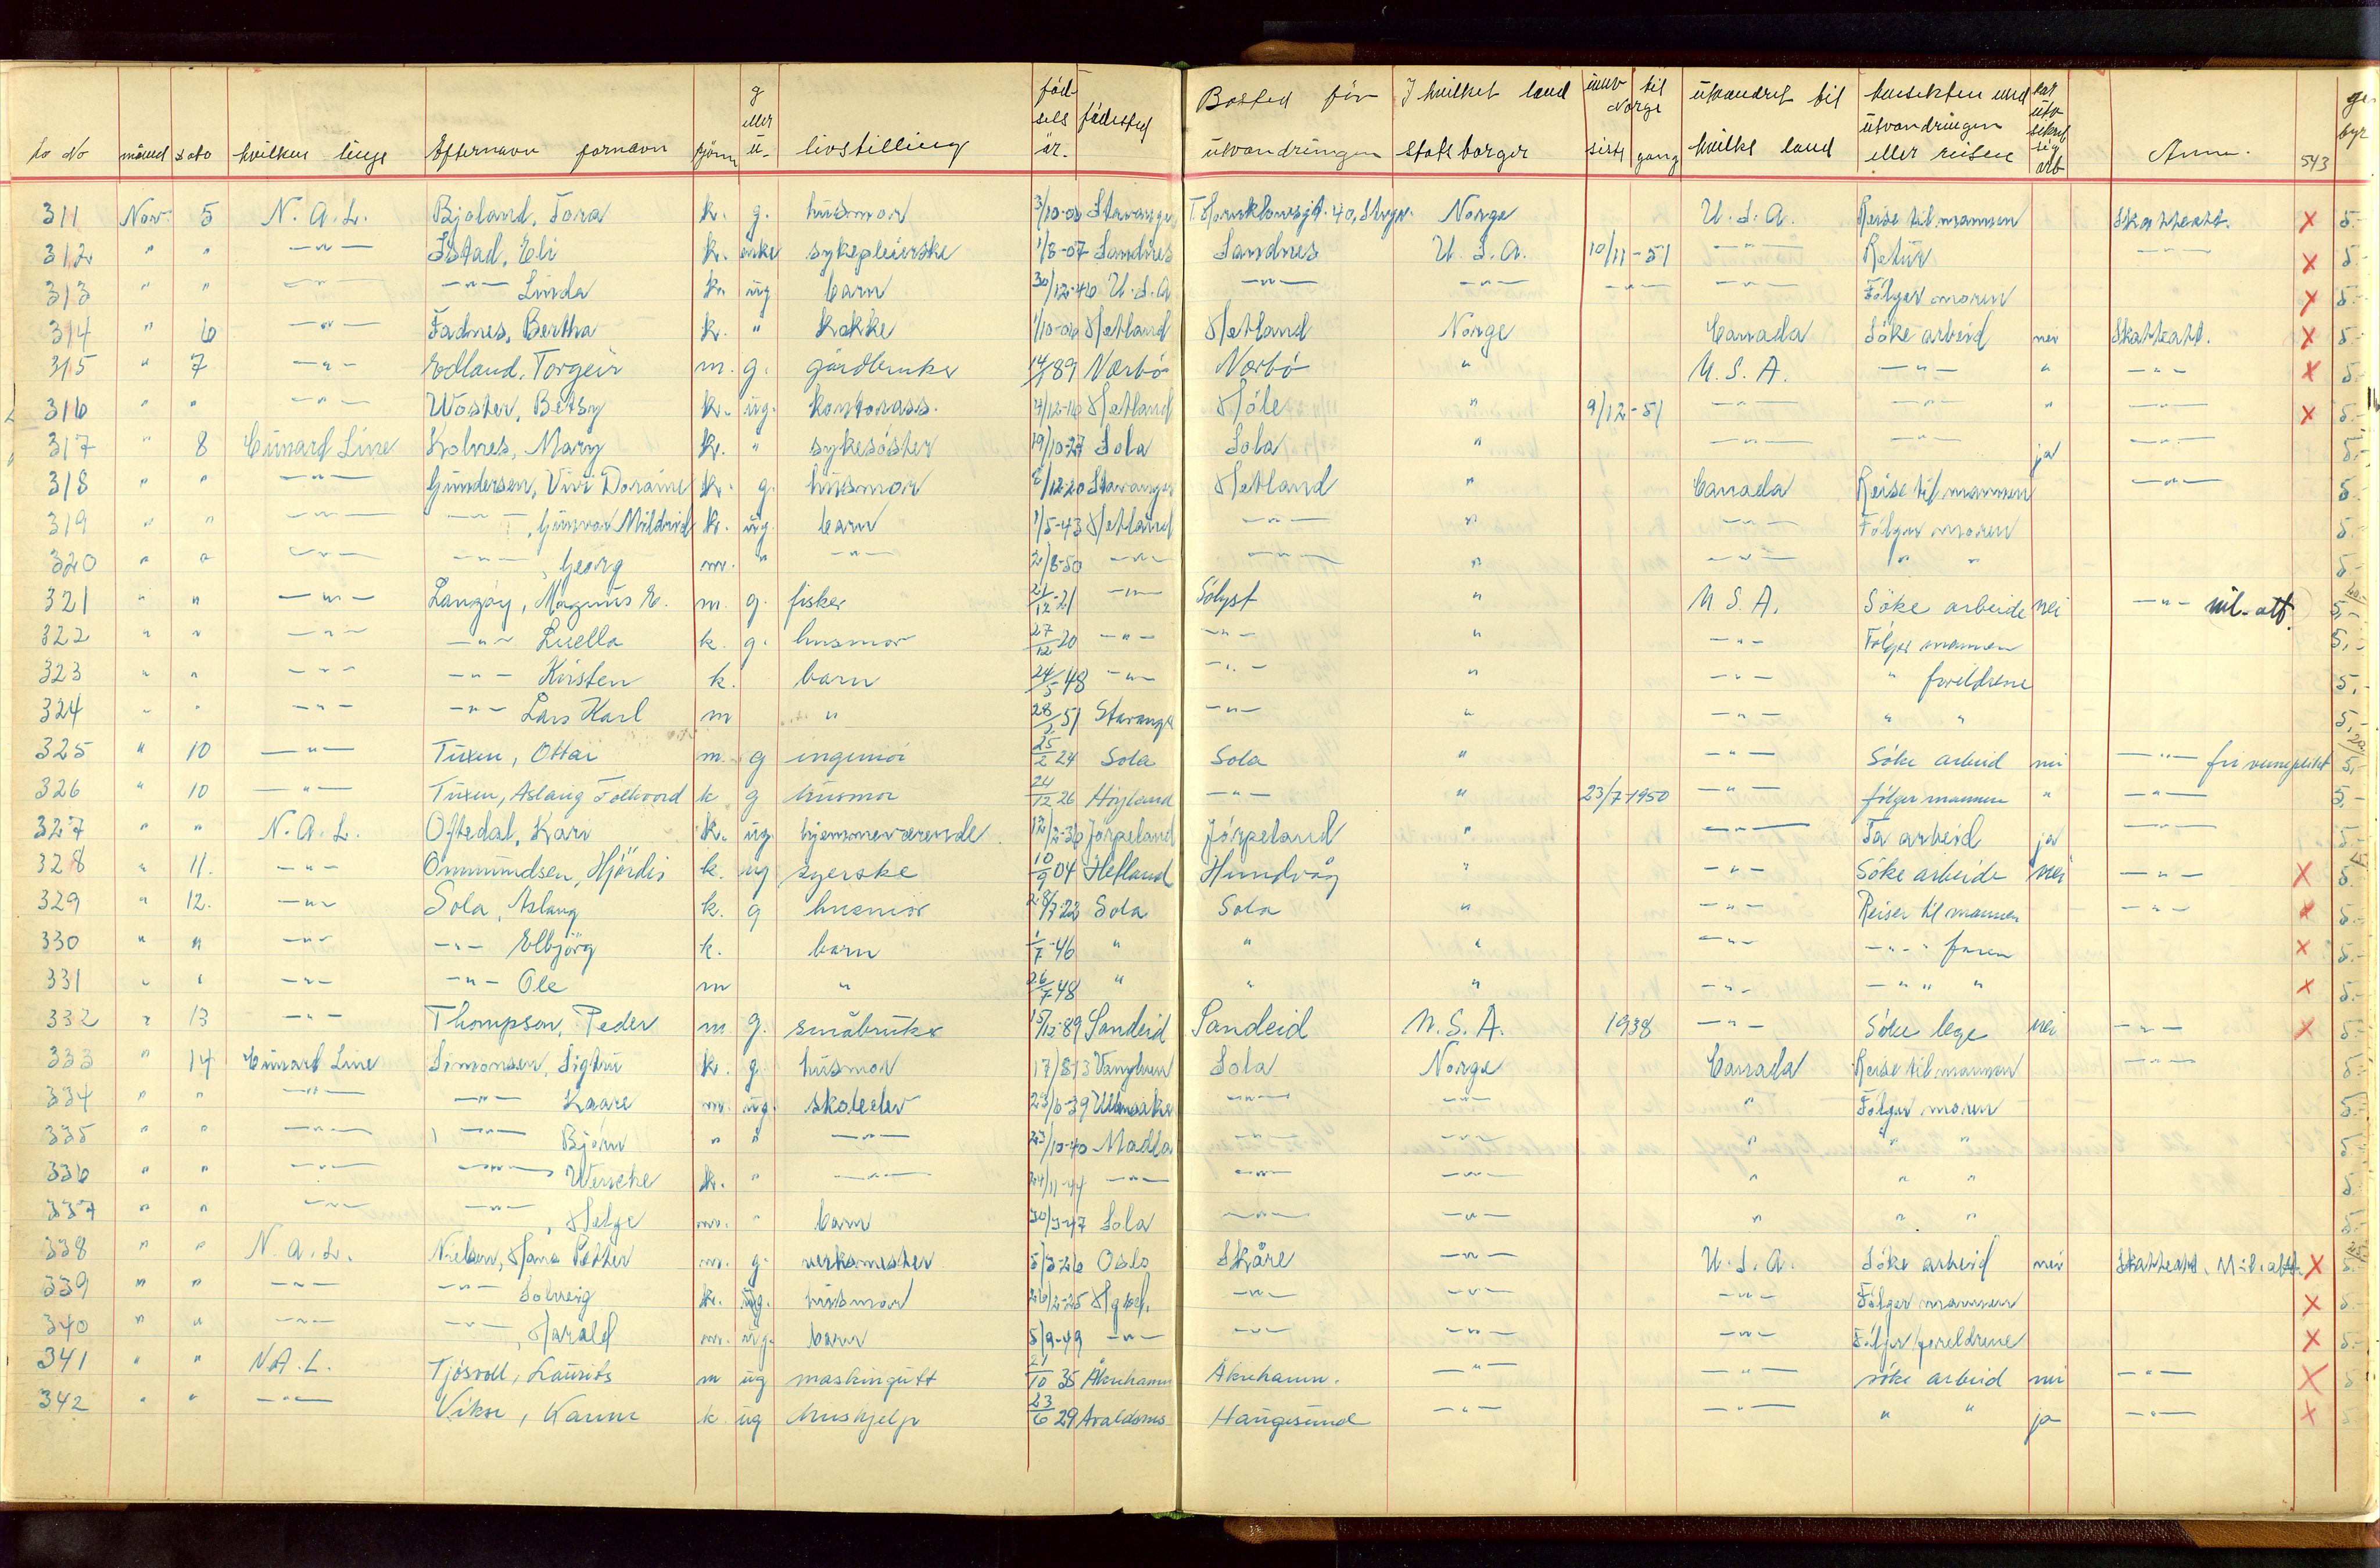 lo No måned dato hvilken linje Efternavn fornavn kjönn g eller u. livstilling födsels år. födested Bosted för utvandringen I hvilket land statsborger innv til Norge siste gang utvandret til hvilke land hensikten med utvandringen eller reisen har utv sikret sig arb Anm. 543
311 Nov. 5 N. A. L. Bjoland, Tora k. g. husmor 3/10-00 Stavanger 40, Stvgr. Norge U. S. A. Reise til mannen Skatteatt. X 5.-
312 " " -"- Istad, Eli k. enke sykepleierske 1/8-07 Sandnes Sandnes U. S. A. 10/11-51 -"- Retur -"- X 5.-
313 " " -"- -"- Linda k. ug barn 30/12-46 U. S. A -"- -"- -"- -"- Fölger moren X 5.-
314 " 6 -"- Fadnes, Bertha k. " kokke 1/10-06 Hetland Hetland Norge Canada Söke arbeid nei Skatteatt. X 5.-
315 " 7 -"- Edland, Torgeir m. g. gårdbruker 14/1 89 Nærbö Nærbö " U. S. A. -"- " -"- X 5.-
316 " " -"- Woster, Betsy k. ug. kontorass. 4/12-16 Hetland Höle " 9/12-51 -"- -"- " -"- X 5.-
317 " 8 Cunard Line Kolnes, Mary k. " sykesöster 19/10-27 Sola Sola " -"- -"- ja -"- 5.-
318 " " -"- Gundersen, Vivi Doraine k. g. husmor 8/12-20 Stavanger Hetland " Canada Reise til mannen -"- 5.-
319 " " -"- -"-, Gunvor Mildrid k. ug. barn 1/5-43 Hetland -"- " -"- Fölger moren 5.-
320 " " -"- -"-, Georg m. " -"- 2/8-50 -"- -"- " -"- " " 5.-
321 " " -"- Langöy, Magnus E. m. g. fisker 21/12-21 -"- Sölyst " U. S. A. Söke arbeide nei -"- mil-att. 5,-
322 " " -"- -"- Luella k. g. husmor 27/12-20 -"- -"- " -"- Fölger mannen 5,-
323 " " -"- -"- Kirsten k. barn 24/5-48 -"- -"- " -"- " foreldrene 5,-
324 " " -"- -"- Lars Karl m " 28/5 51 Stavanger -"- " -"- " " 5,-
325 " 10 -"- Tuxen, Ottar m. g ingeniör 25/2 24 Sola Sola " -"- Söke arbeid nei -"- fri verneplikt 5,-
326 " 10 -"- Tuxen, Aslaug Folkvord k g husmor 24/12 26 Höyland -"- " 23/7-1950 -"- fölger mannen " -"- 5,-
327 " " N. A. L. Oftedal, Kari k. ug. hjemmeværende 12/2-36 Jörpeland Jörpeland " -"- Ta arbeid ja -"- 5.-
328 " 11. -"- Ommundsen, Hjördis k. ug syerske 10/9 04 Hetland Hundvåg " -"- Söke arbeide nei -"- X 5.-
329 " 12. -"- Sola, Aslaug k. g husmor 28/7-22 Sola Sola " -"- Reiser til mannen -"- X 5.-
330 " " -"- -"- Elbjörg k. barn 1/7-46 " " " -"- -"- faren X 5.-
331 " " -"- -"- Ole m " 26/7 48 " " " -"- -"- " X 5.-
332 " 13 -"- Thompson, Peder m. g. småbruker 15/12-89 Sandeid Sandeid U. S. A. 1938 -"- Söke lege nei -"- X 5.-
333 " 14 Cunard Line Simonsen, Sigtru k. g. husmor 17/8-13 Sola Norge Canada Reise til mannen -"- 5.-
334 " " -"- -"- Kaare m. ug. skoleelev 23/6-39 -"- -"- " Fölger moren 5.-
335 " " -"- -"- Björn " " -"- 23/10-40 Madla -"- -"- " " " 5.-
336 " " -"- -"- Wenche k. " -"- 24/11-44 -"- -"- -"- " " " 5.-
337 " " -"- -"-, Helge m. " barn 30/3-47 Sola -"- -"- " " " 5.-
338 " " N. A. L. Nielsen, Hans Petter m. g. verksmester 5/3-26 Oslo Skåre -"- U. S. A. Söke arbeid nei Skatteatt. Mil. att. X 5.-
339 " " -"- -"- Solveig k. g. husmor 26/2-25 -"- -"- -"- Fölger mannen X 5.-
340 " " -"- -"-, Harald m. ug. barn 5/9-49 -"- -"- -"- -"- Fölger foreldrene X 5.-
341 " " N.A.L. Tjösvoll, Laurits m ug maskingutt 21/10 35 Åkrehamn Åkrehamn. -"- -"- söke arbeid nei -"- X 5
342 " " -"- Vikse, k ug hushjelp 23/6 29 Avaldsnes Haugesund -"- -"- " " ja -"- X 5